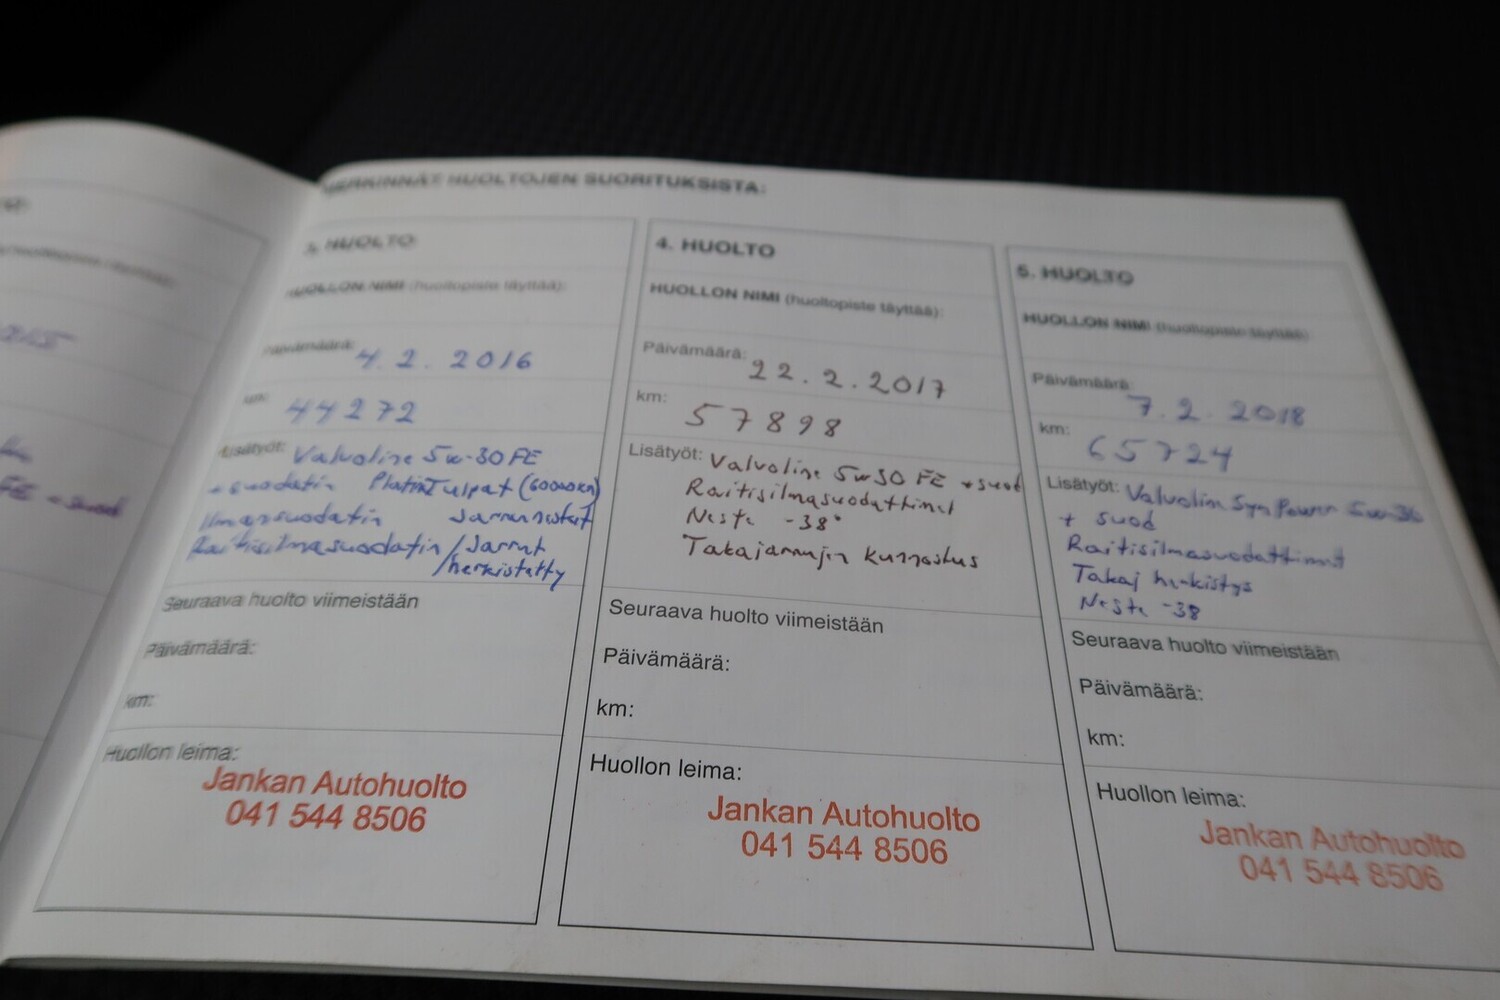 MERKINNÄT HUOLTOJEN SUORITUKSISTA:
3. HUOLTO
HUOLLON NIMI (huoltopiste täyttää):
Päivämäärä: 4.2.2016
km: 44272
Lisätyöt: Valvoline 5w-30 FE
+ suodatin Platina Tulpat (60000km)
Ilmansuodatin Jarrunesteet
Raitisilmasuodatin / Jarrut
/herkistetty
Seuraava huolto viimeistään
Päivämäärä:
km:
Huollon leima:
Jankan Autohuolto
041 544 8506
4. HUOLTO
HUOLLON NIMI (huoltopiste täyttää):
Päivämäärä: 22.2.2017
km: 57898
Lisätyöt: Valvoline 5w30 FE + suod
Raitisilmasuodattimet
Neste -38°
Takajarrujen kunnostus
Seuraava huolto viimeistään
Päivämäärä:
km:
Huollon leima:
Jankan Autohuolto
041 544 8506
5. HUOLTO
HUOLLON NIMI (huoltopiste täyttää)
Päivämäärä: 7.2.2018
km: 65724
Lisätyöt: Valvolin Syn Power 5w-30
+ suod
Raitisilmasuodattimet
Takaj herkistys
Neste -38
Seuraava huolto viimeistään
Päivämäärä:
km:
Huollon leima:
Jankan Autohuolto
041 544 8506